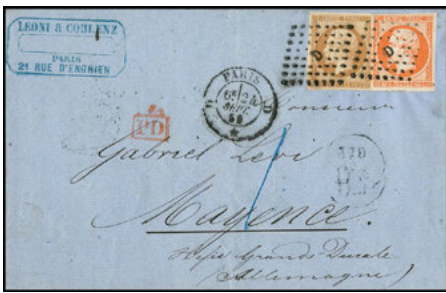 LEONI & COBLENZ
PARIS
21 RUE D'ENGHIEN
PARIS
D D
SEPT
PD
D D
Monsieur
Gabriel Levi
Mayence
Hesse Grand Ducale
(Allemagne)